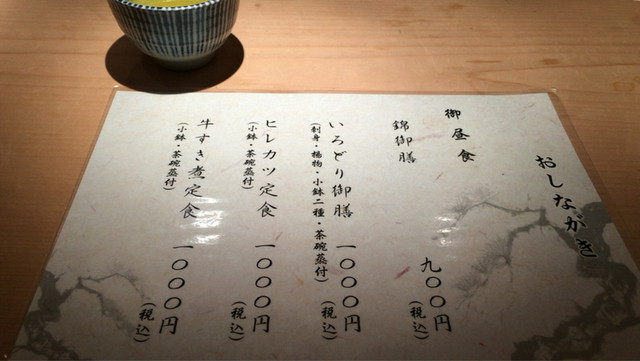 おしながき
御昼食
錦御膳 九〇〇円 (税込)
いろどり御膳 一〇〇〇円 (税込)
(刺身・揚物・小鉢二種・茶碗蒸付)
ヒレカツ定食 一〇〇〇円 (税込)
(小鉢・茶碗蒸付)
牛すき煮定食 一〇〇〇円 (税込)
(小鉢・茶碗蒸付)